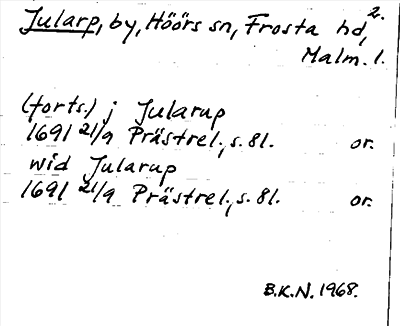 2.
Jularp, by, Höörs sn, Frosta hd,
Malm. l.
(forts.) j Jularup
1691 21/9 Prästrel., s. 81. or.
wid Jularup
1691 21/9 Prästrel., s. 81. or.
B.K.N. 1968.